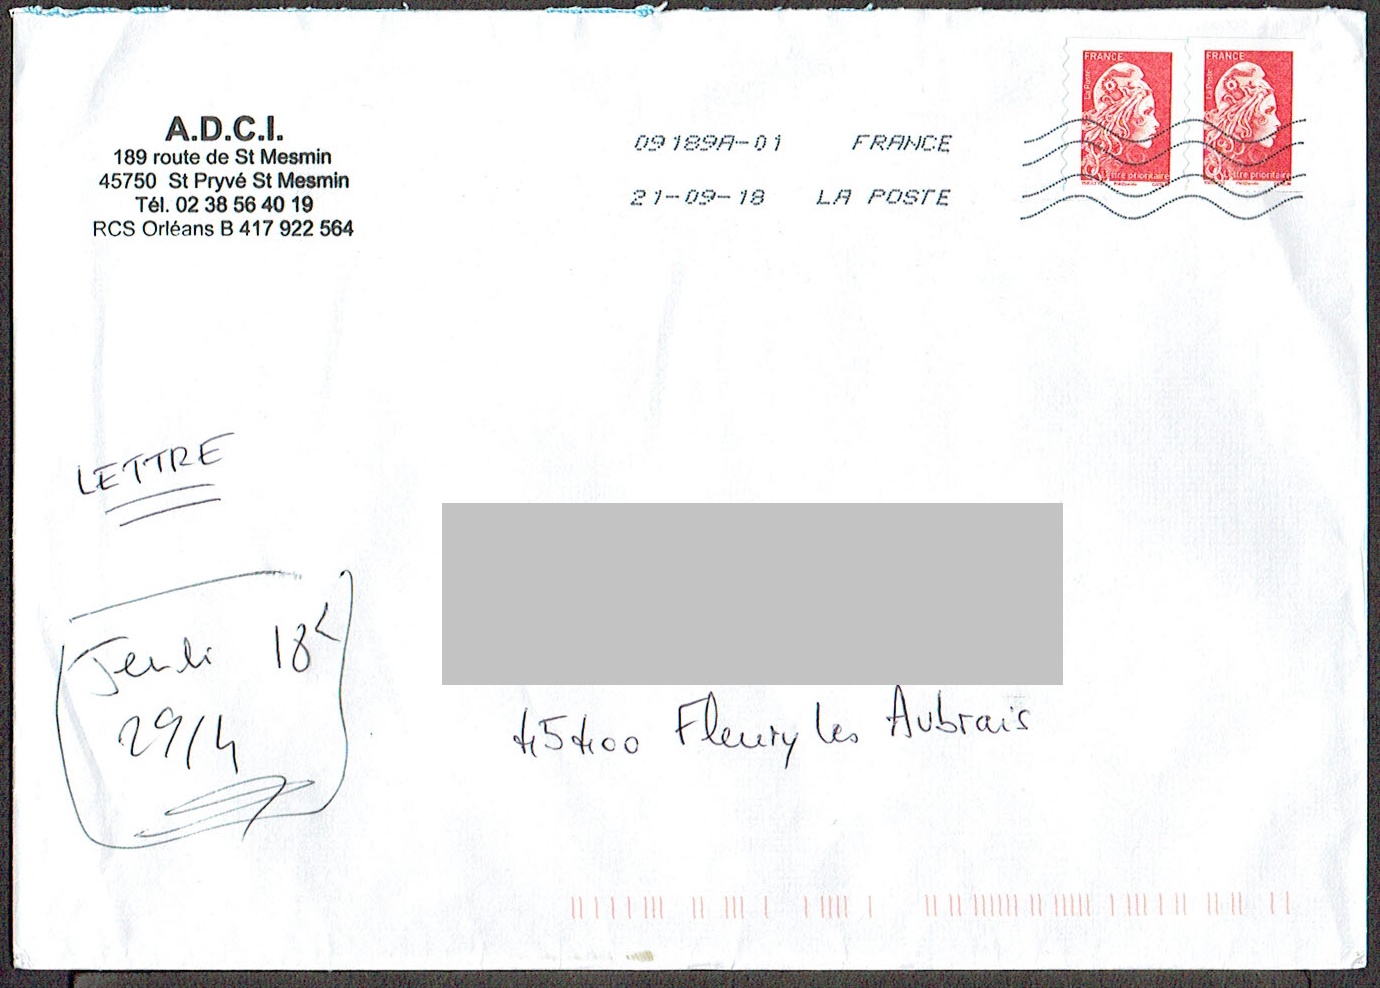 A.D.C.I.
189 route de St Mesmin
45750 St Pryvé St Mesmin
Tél. 02 38 56 40 19
RCS Orléans B 417 922 564
09189A-01 FRANCE
21-09-18 LA POSTE
FRANCE
La Poste
Lettre prioritaire
FRANCE
La Poste
Lettre prioritaire
LETTRE
Jeudi 18
29/4
45400 Fleury les Aubrais